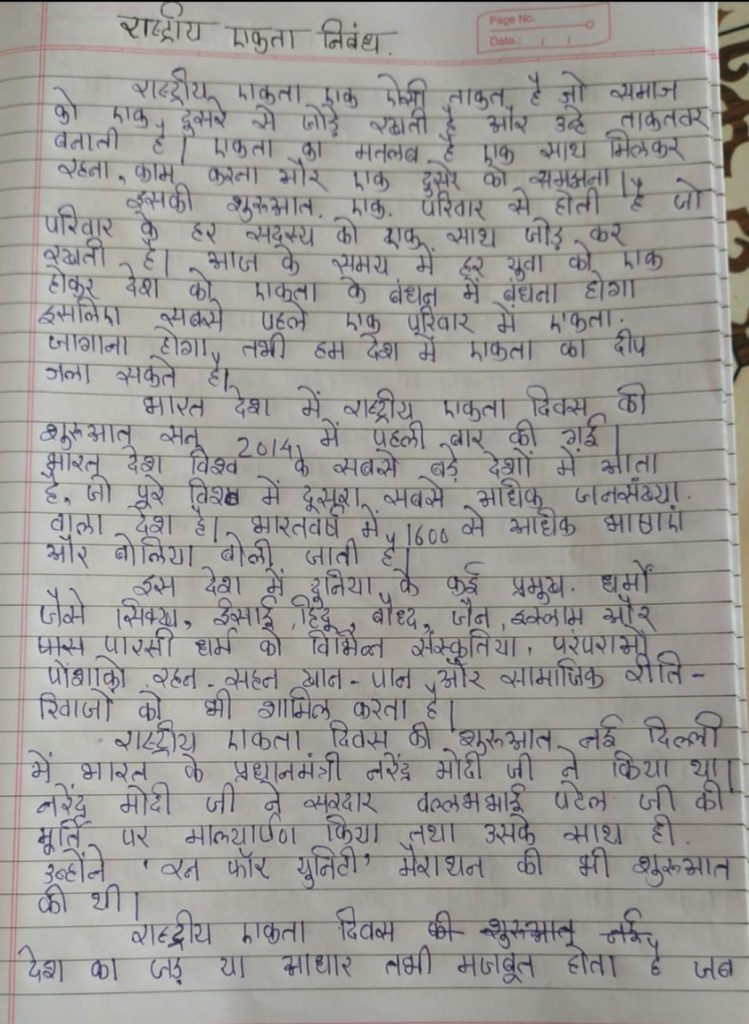 राष्ट्रीय एकता निबंध.
Page No.
Date: / /
राष्ट्रीय एकता एक ऐसी ताकत है जो समाज
को एक दुसरे से जोड़े रखती है और उन्हे ताकतवर
बनाती है। एकता का मतलब है एक साथ मिलकर
रहना, काम करना और एक दुसरे को समझना।
इसकी शुरुआत. एक. परिवार से होती है जो
परिवार के हर सदस्य को एक साथ जोड़ कर
रखती है। आज के समय में हर युवा को एक
होकर देश को एकता के बंधन में बंधना होगा
इसलिए सबसे पहले एक परिवार में एकता.
जागाना होगा, तभी हम देश में एकता का दीप
जला सकते है।
भारत देश में राष्ट्रीय एकता दिवस की
शुरुआत सन् 2014 में पहली बार की गई।
भारत देश विश्व के सबसे बड़े देशों में आता
है, जो पूरे विश्व में दूसरा सबसे अधिक जनसंख्या.
वाला देश है। भारतवर्ष में 1600 से अधिक भाषाएं
और बोलिया बोली जाती है।
इस देश में दुनिया के कई प्रमुख. धर्मों
जैसे सिक्ख, ईसाई, हिंदू, बौध्द, जैन, इस्लाम और
पारसी धर्म को विभिन्न संस्कृतिया, परंपराओं
पोशाको, रहन - सहन खान - पान और सामाजिक रीति -
रिवाजों को भी शामिल करता है।
राष्ट्रीय एकता दिवस की शुरुआत नई दिल्ली
में भारत के प्रधानमंत्री नरेंद्र मोदी जी ने किया था।
नरेंद्र मोदी जी ने सरदार वल्लभभाई पटेल जी की
मूर्ति पर माल्यार्पण किया तथा उसके साथ ही.
उन्होंने 'रन फॉर युनिटी' मैराथन की भी शुरुआत
की थी।
राष्ट्रीय एकता दिवस की शुरुआत नई
देश का जड़ या आधार तभी मजबूत होता है जब